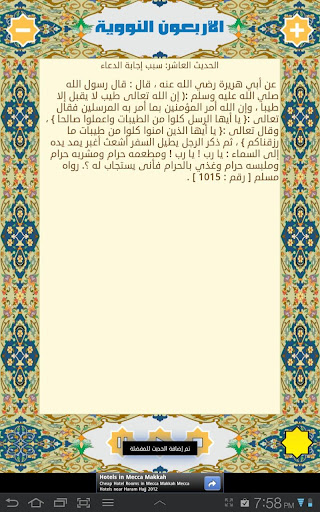 الأربعون النووية
الحديث العاشر: سبب إجابة الدعاء
عن أبي هريرة رضي الله عنه ، قال : قال رسول الله
صلي الله عليه وسلم :{ إن الله تعالى طيب لا يقبل إلا
طيبا ، وإن الله أمر المؤمنين بما أمر به المرسلين فقال
تعالى :{ يا أيها الرسل كلوا من الطيبات واعملوا صالحا } ،
وقال تعالى :{ يا أيها الذين امنوا كلوا من طيبات ما
رزقناكم } ، ثم ذكر الرجل يطيل السفر أشعث أغبر يمد يده
إلى السماء : يا رب ! يا رب ! ومطعمه حرام ومشربه حرام
وملبسه حرام وغذي بالحرام فأنى يستجاب له ؟. رواه
مسلم [ رقم : 1015 ] .
تم إضافة الحديث للمفضلة
Hotels in Mecca Makkah
Cheap Hotel Rooms in Mecca Makkah Mecca
Hotels near Haram Hajj 2012
7:58 PM